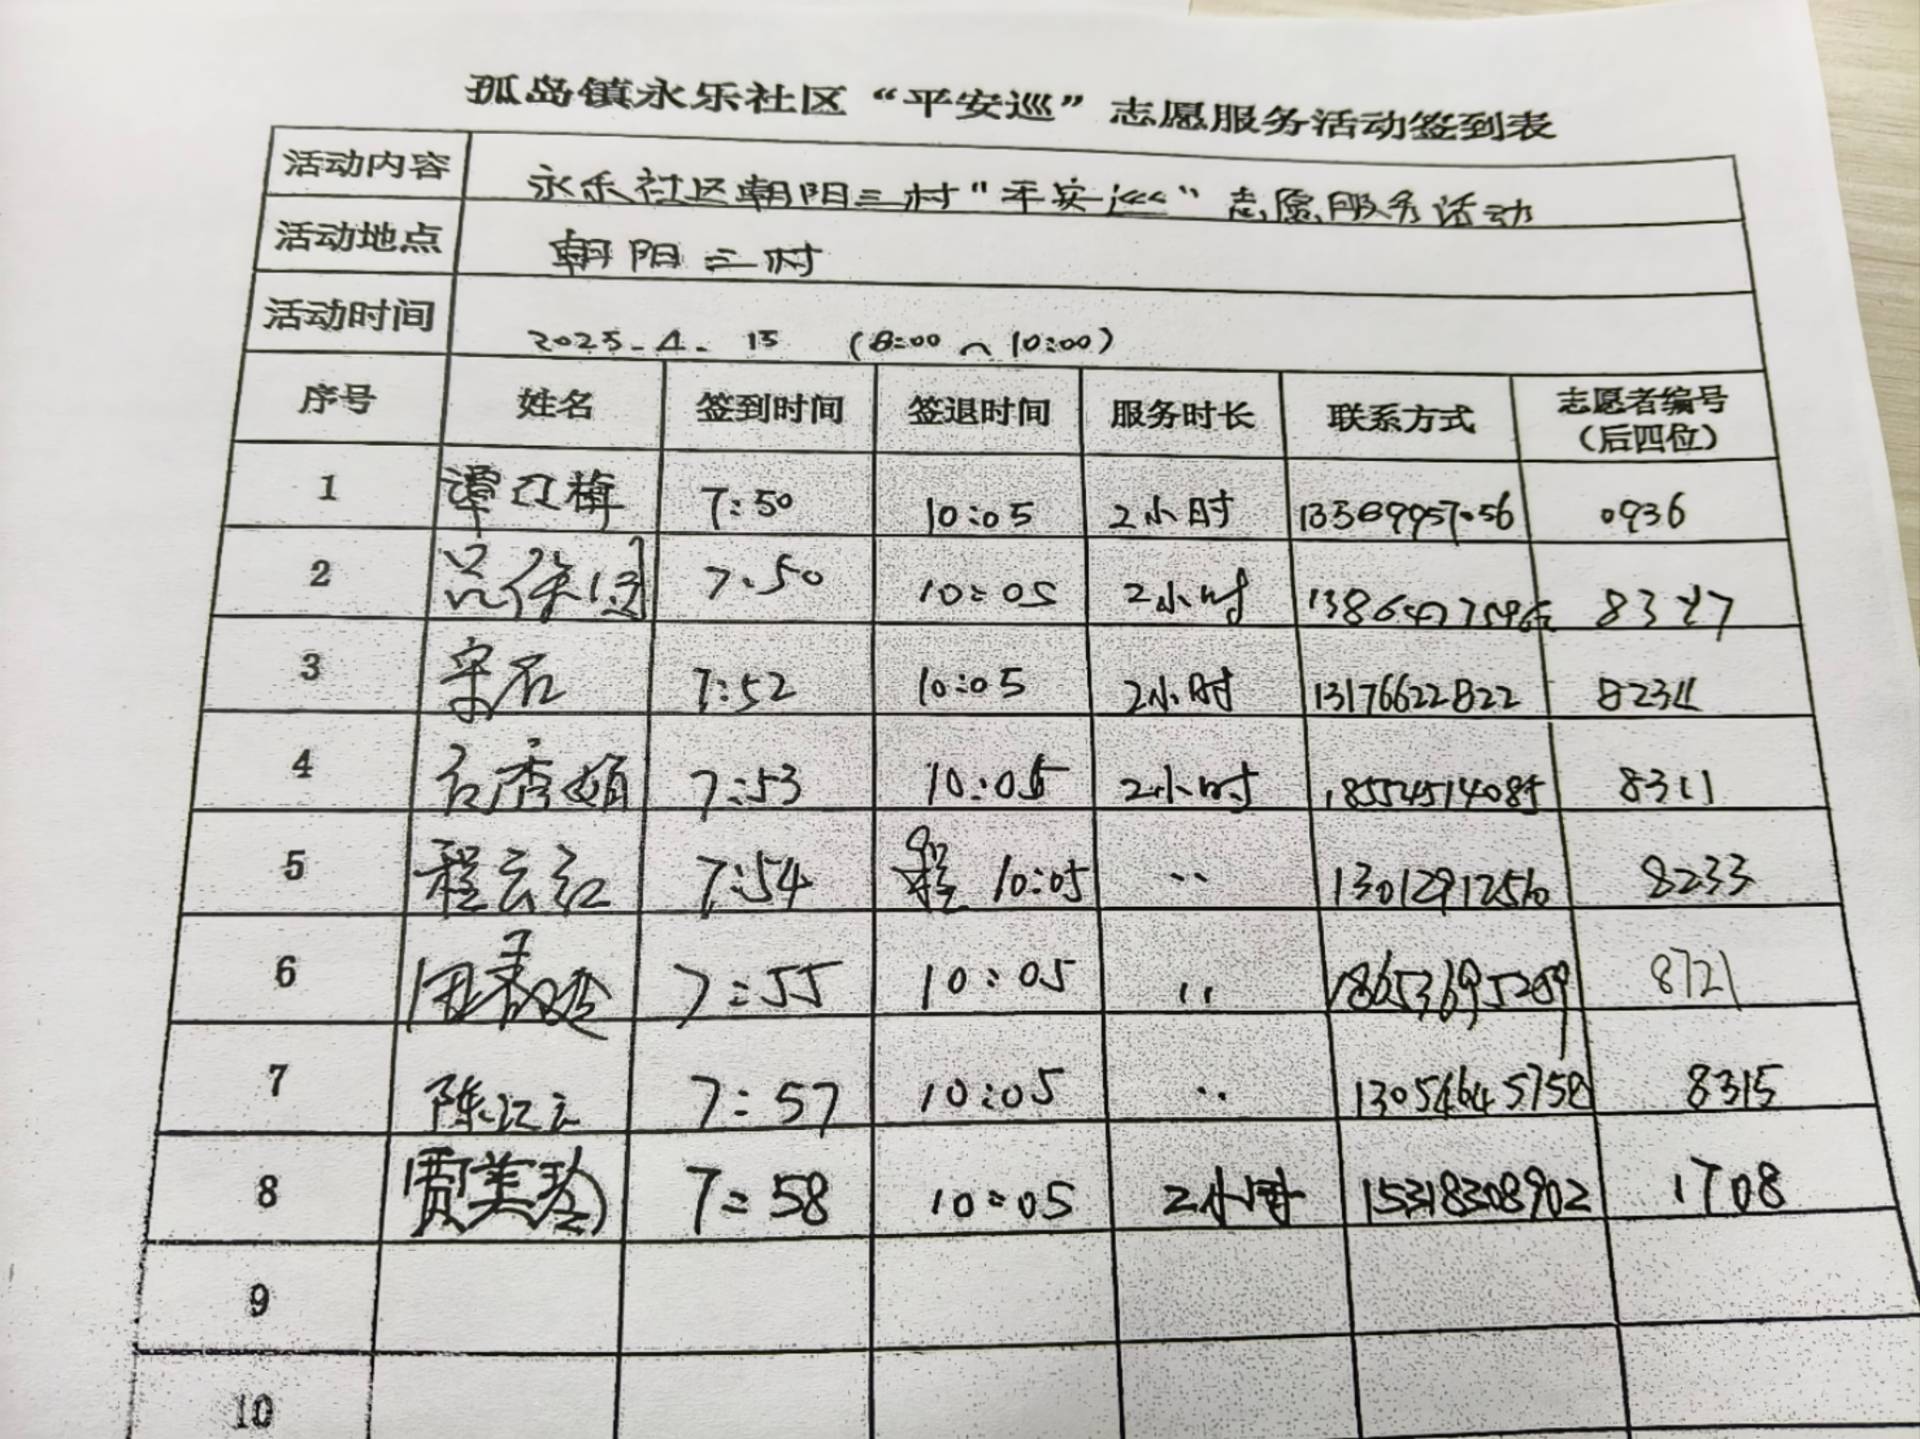 孤岛镇永乐社区“平安巡”志愿服务活动签到表
活动内容 永乐社区朝阳三村“平安巡”志愿服务活动
活动地点 朝阳三村
活动时间 2025.4.15 (8:00~10:00)
序号 姓名 签到时间 签退时间 服务时长 联系方式 志愿者编号
(后四位)
1 谭红梅 7:50 10:05 2小时 0936
2 7:50 10:05 2小时
3 7:52 10:05 2小时 13176622822
4 7:53 10:05 2小时 8311
5 程云红 7:54 程 10:05 〃 13012912510 8233
6 7:55 10:05 〃 18653695209 8721
7 7:57 10:05 〃 13054645758 8315
8 贾美玲 7:58 10:05 2小时 15318308902 1708
9
10